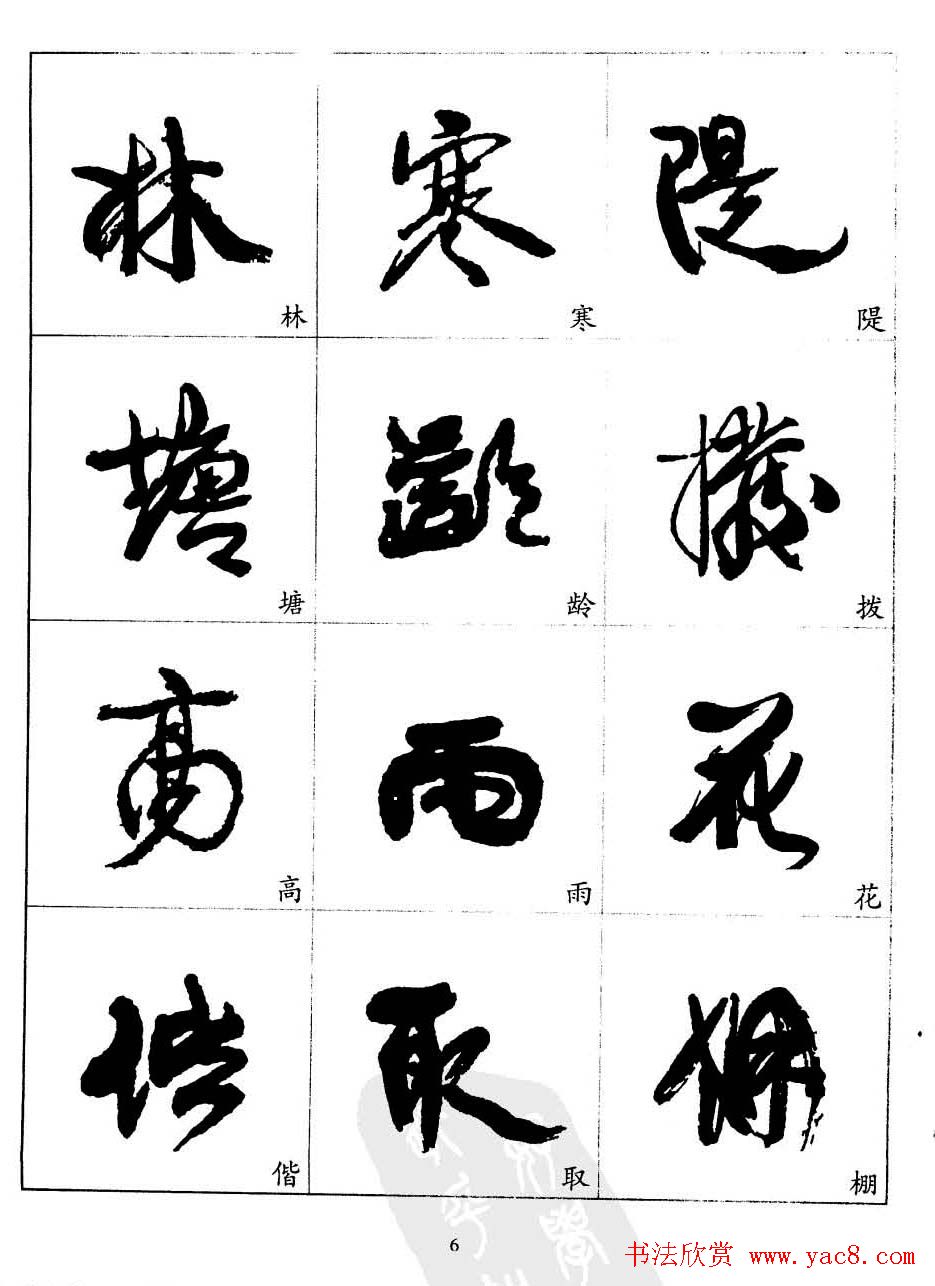 林 寒 隄
林 寒 隄
塘 齡 撥
塘 龄 拨
高 雨 花
高 雨 花
偕 取 棚
偕 取 棚
6
书法欣赏 www.yac8.com